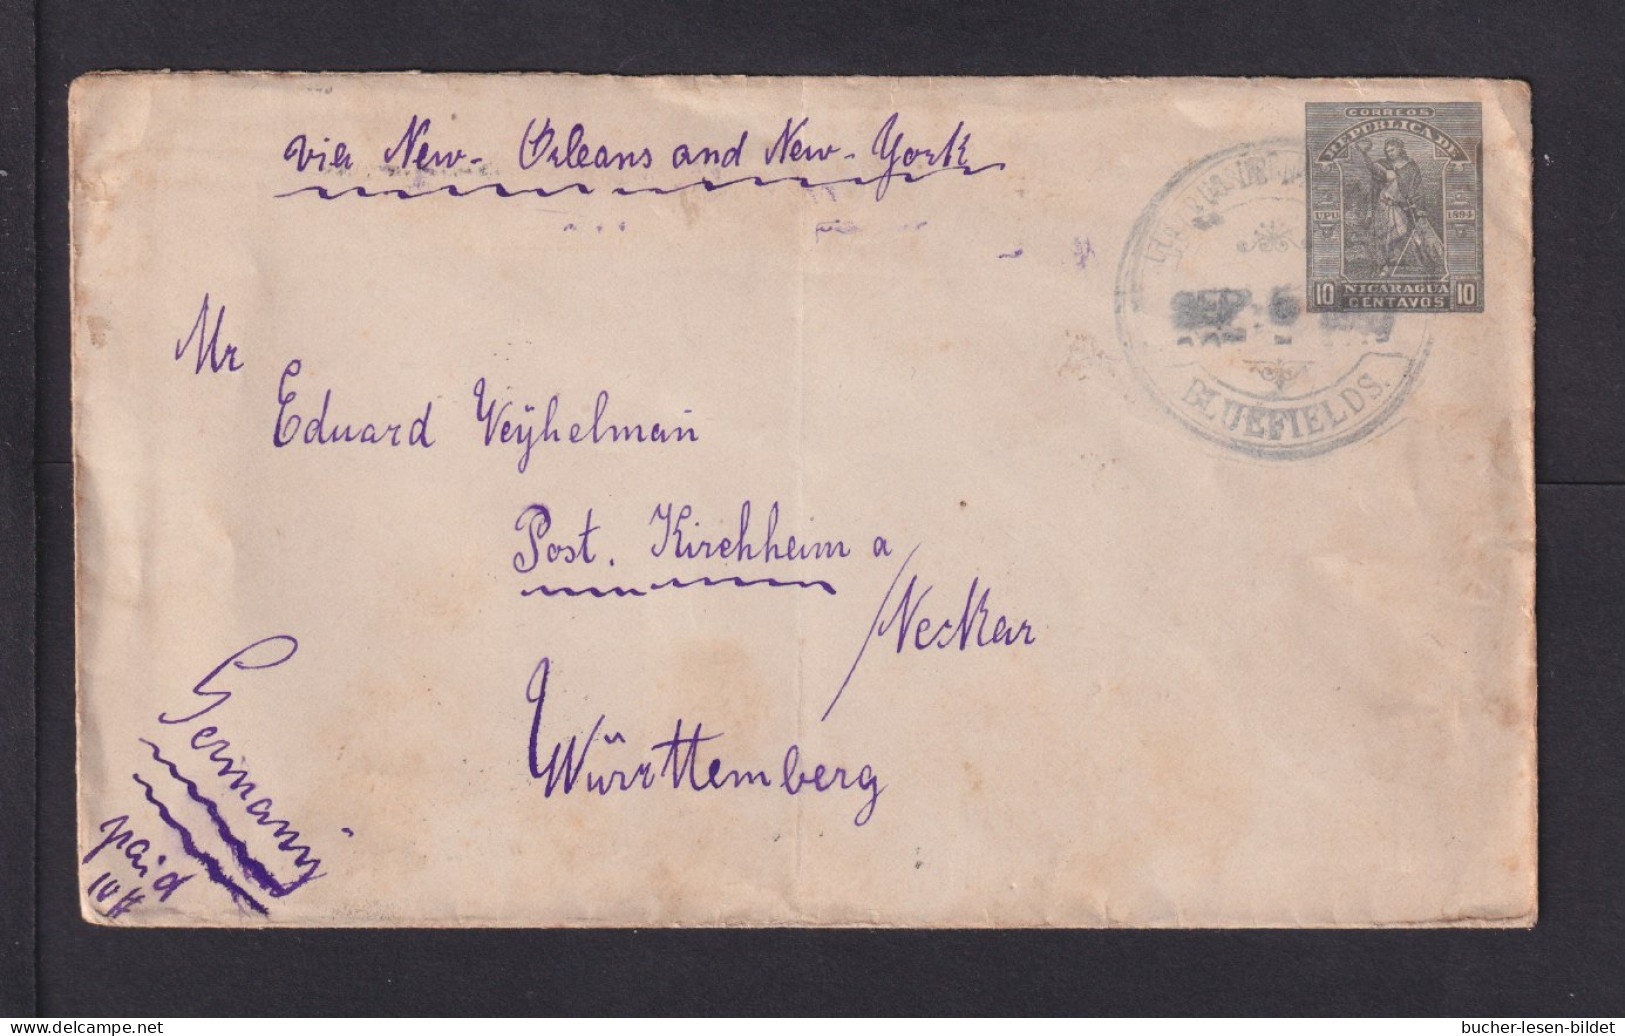 via New-Orleans and New-York
CORREOS
REPUBLICA DE
UPU 1894
10 NICARAGUA 10
CENTAVOS
SEP 5
BLUEFIELDS.
Mr
Eduard Weÿhelman
Post. Kirchheim a
/Neckar
Württemberg
Germanÿ
paid
bucher-lesen-bildet